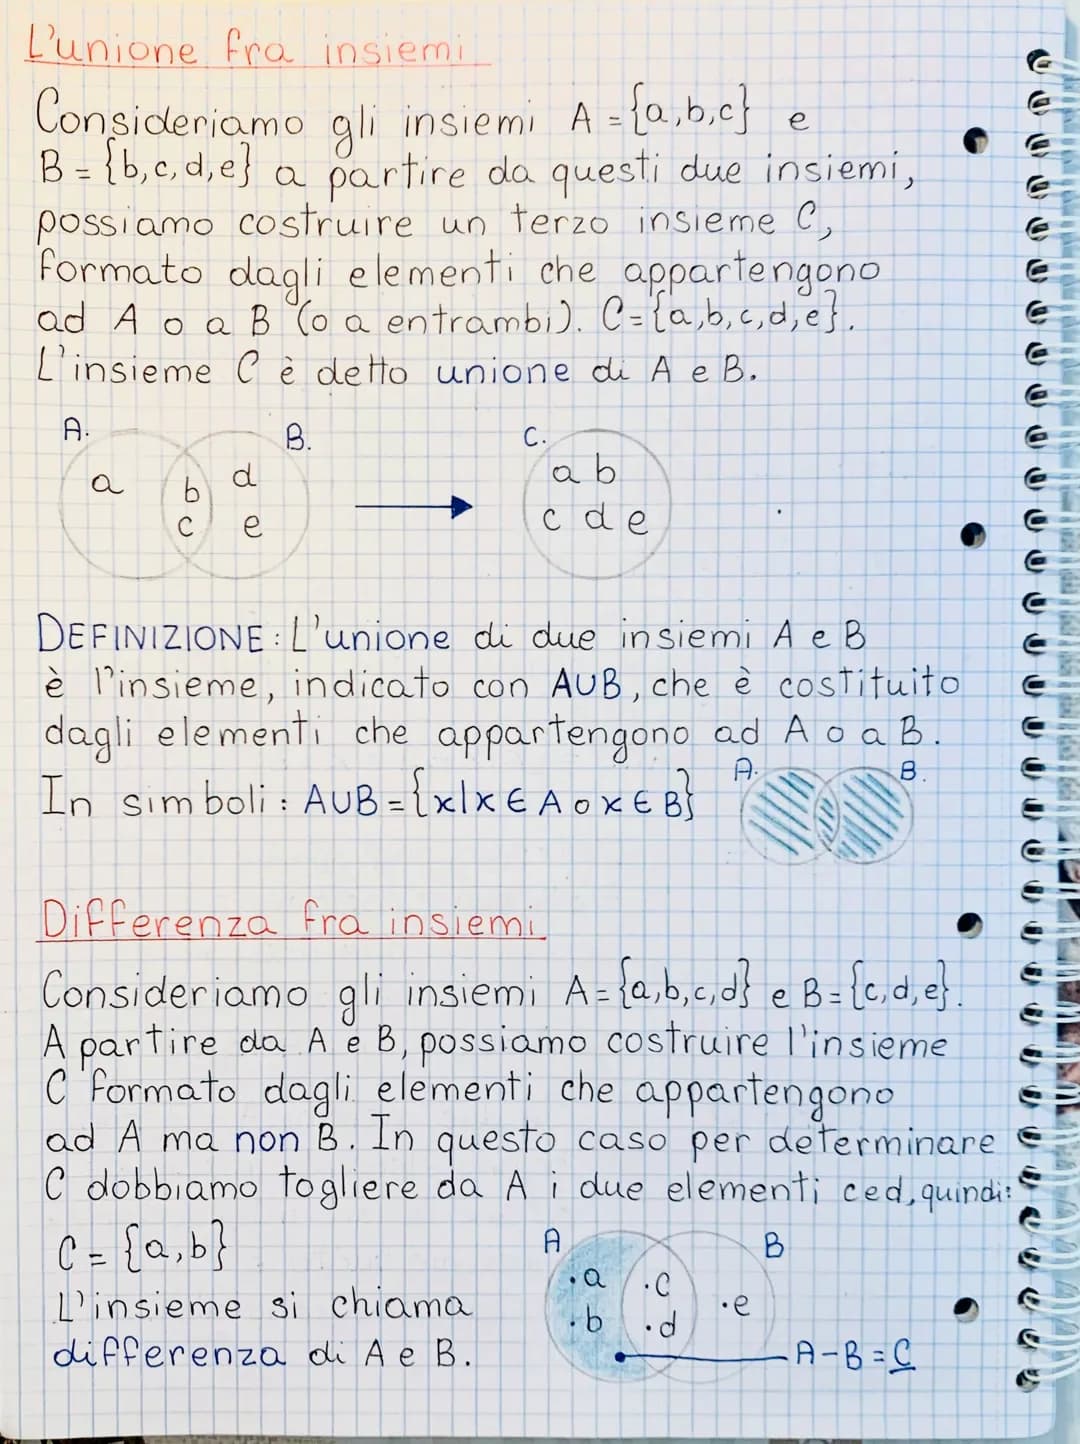 L'unione fra insiemi
Consideriamo gli insiemi A = {a,b,c} e
B = {b,c,d,e} a partire da questi due insiemi,
possiamo costruire un terzo insieme C,
formato dagli elementi che appartengono
ad A o a B (o a entrambi). C={a,b,c,d,e}.
L'insieme C è detto unione di A e B.
A. B. C.
a b d a b
c e c d e
DEFINIZIONE: L'unione di due insiemi A e B
è l'insieme, indicato con A∪B, che è costituito
dagli elementi che appartengono ad A o a B.
In simboli: A∪B={x|x∈A o x∈B}
A. B.
Differenza fra insiemi
Consideriamo gli insiemi A={a,b,c,d} e B={c,d,e}.
A partire da A e B, possiamo costruire l'insieme
C formato dagli elementi che appartengono
ad A ma non B. In questo caso per determinare
C dobbiamo togliere da A i due elementi c e d, quindi:
C = {a,b}
L'insieme si chiama
differenza di A e B.
A B
.a .c .e
.b .d
A-B=C